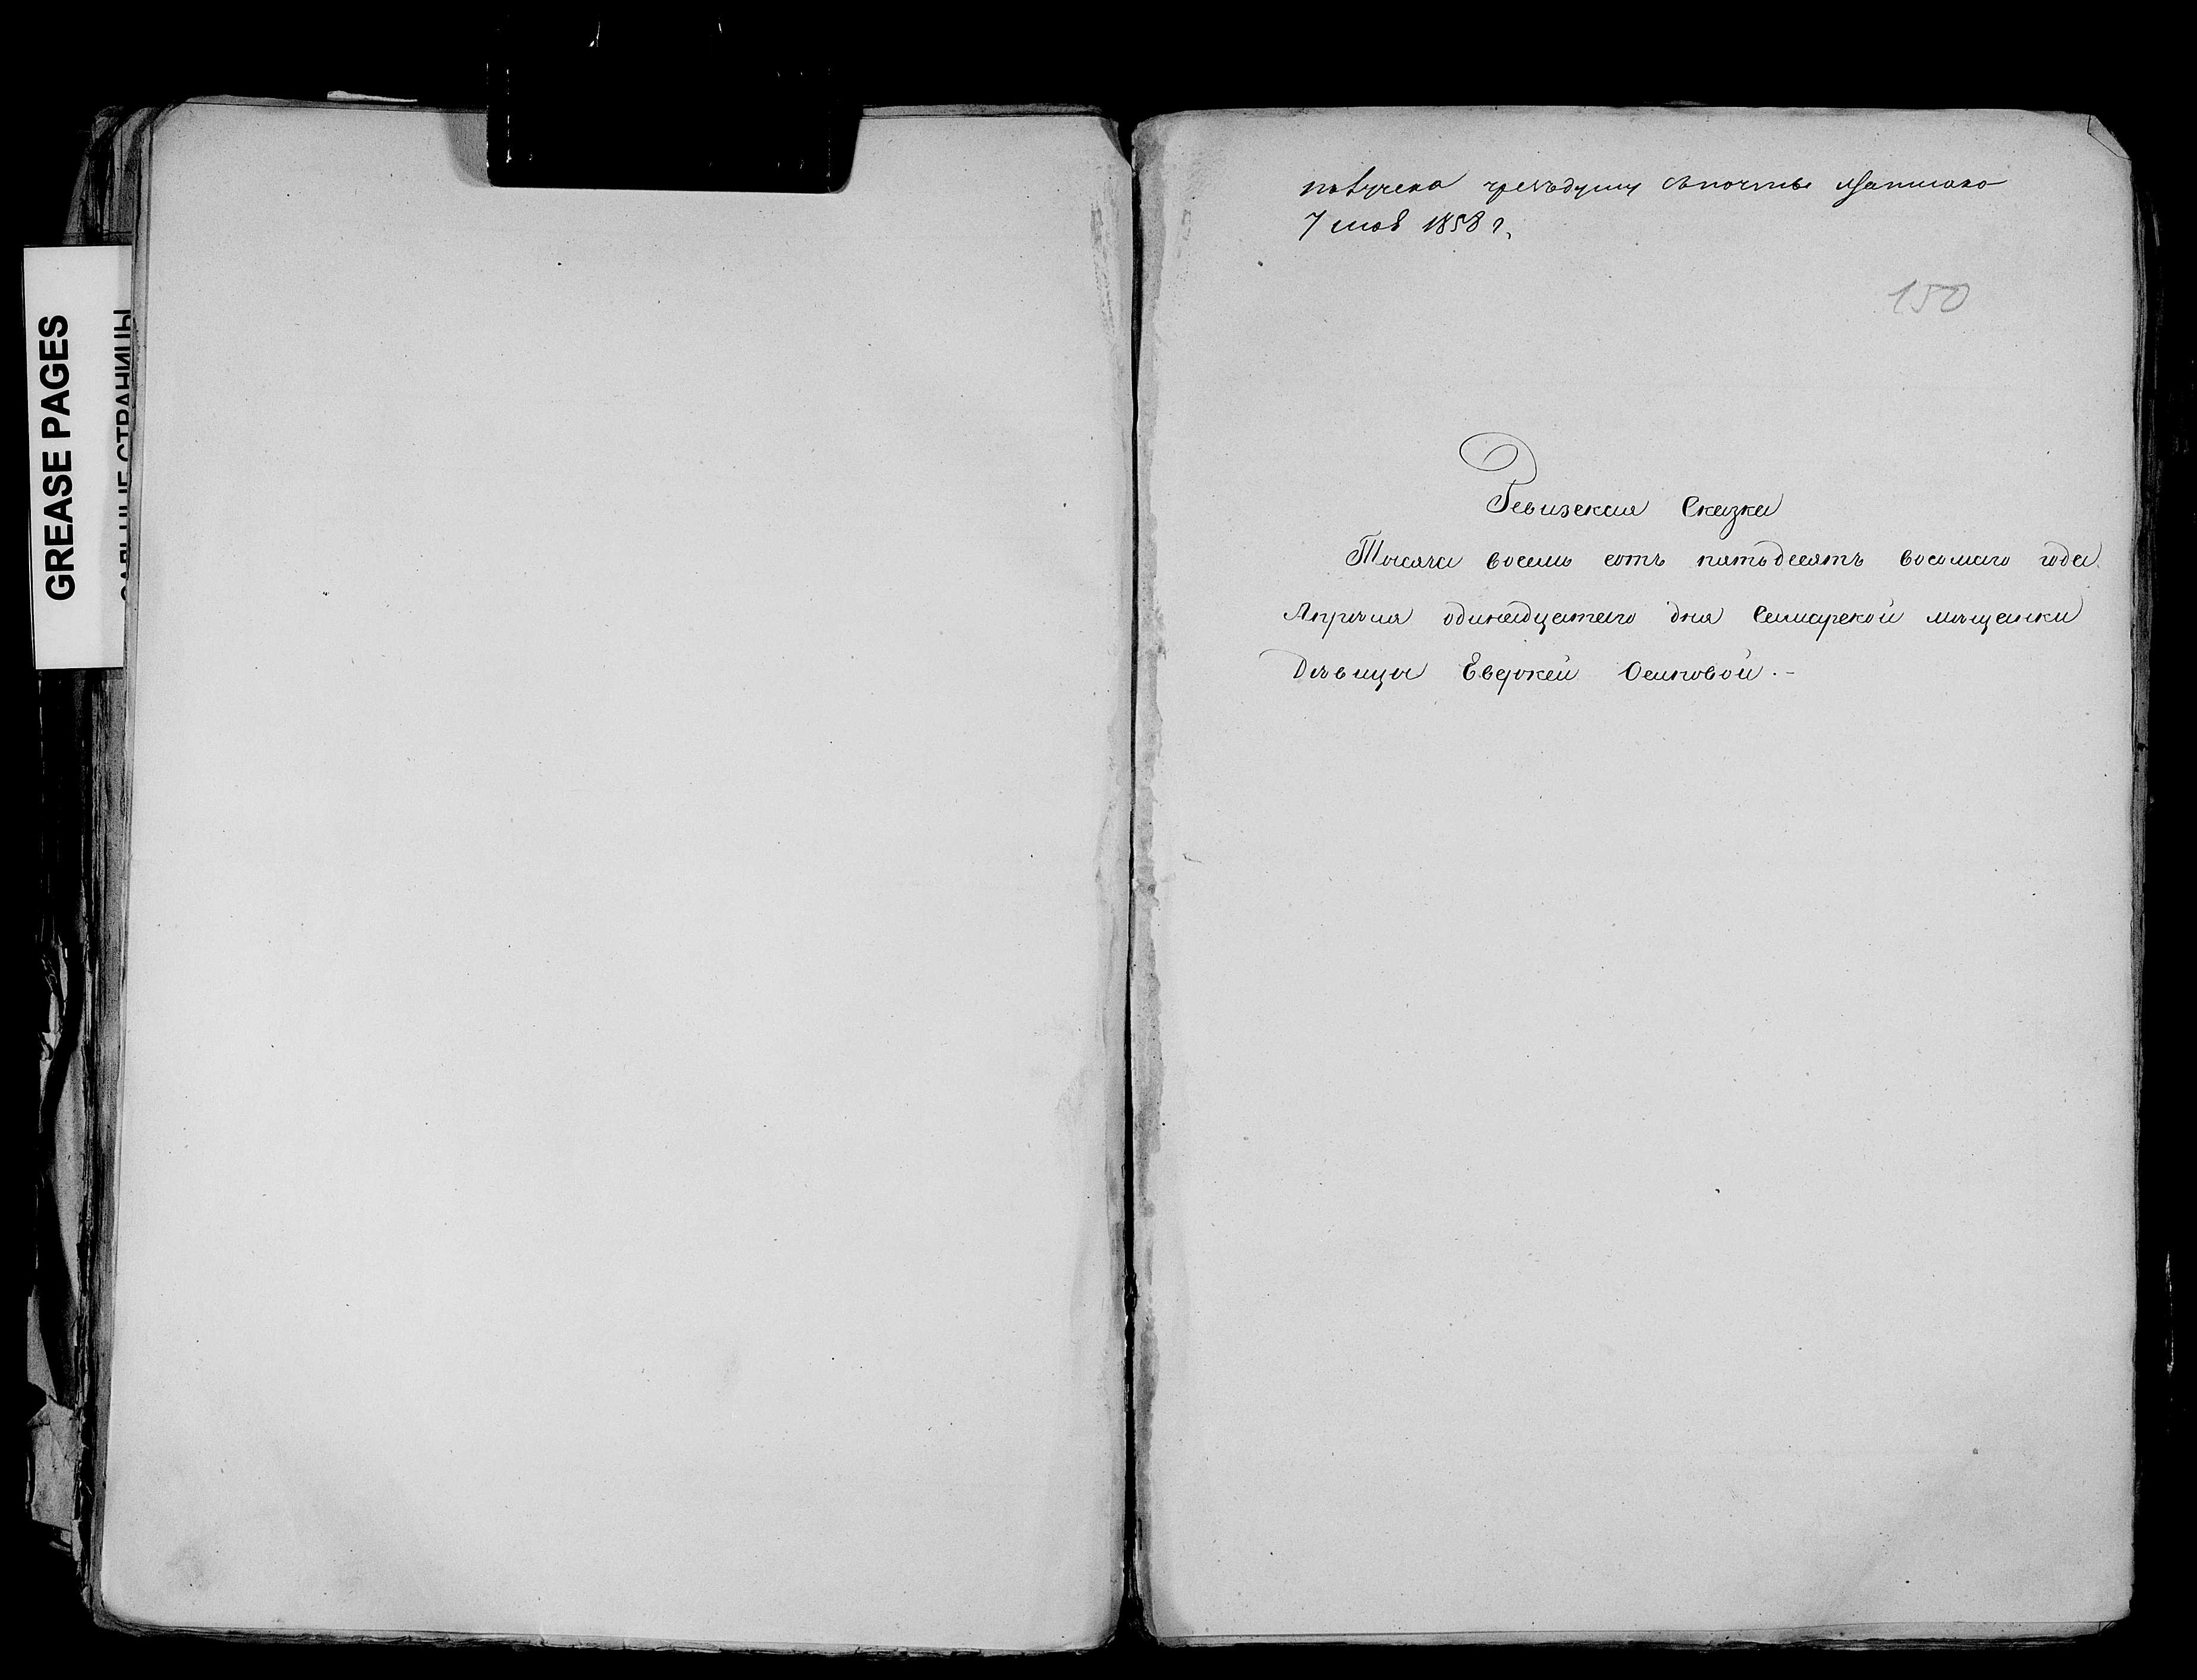 GREASE PAGES
СТРАНИЦЫ
получена
7 1858 г.
150
Ревизская Сказка
Тысяча восемь сотъ пятьдесятъ восьмаго года
Апрѣля одинадцатаго дня Самарской мѣщанки
Дѣвицы Евдокеи Осиповой.-